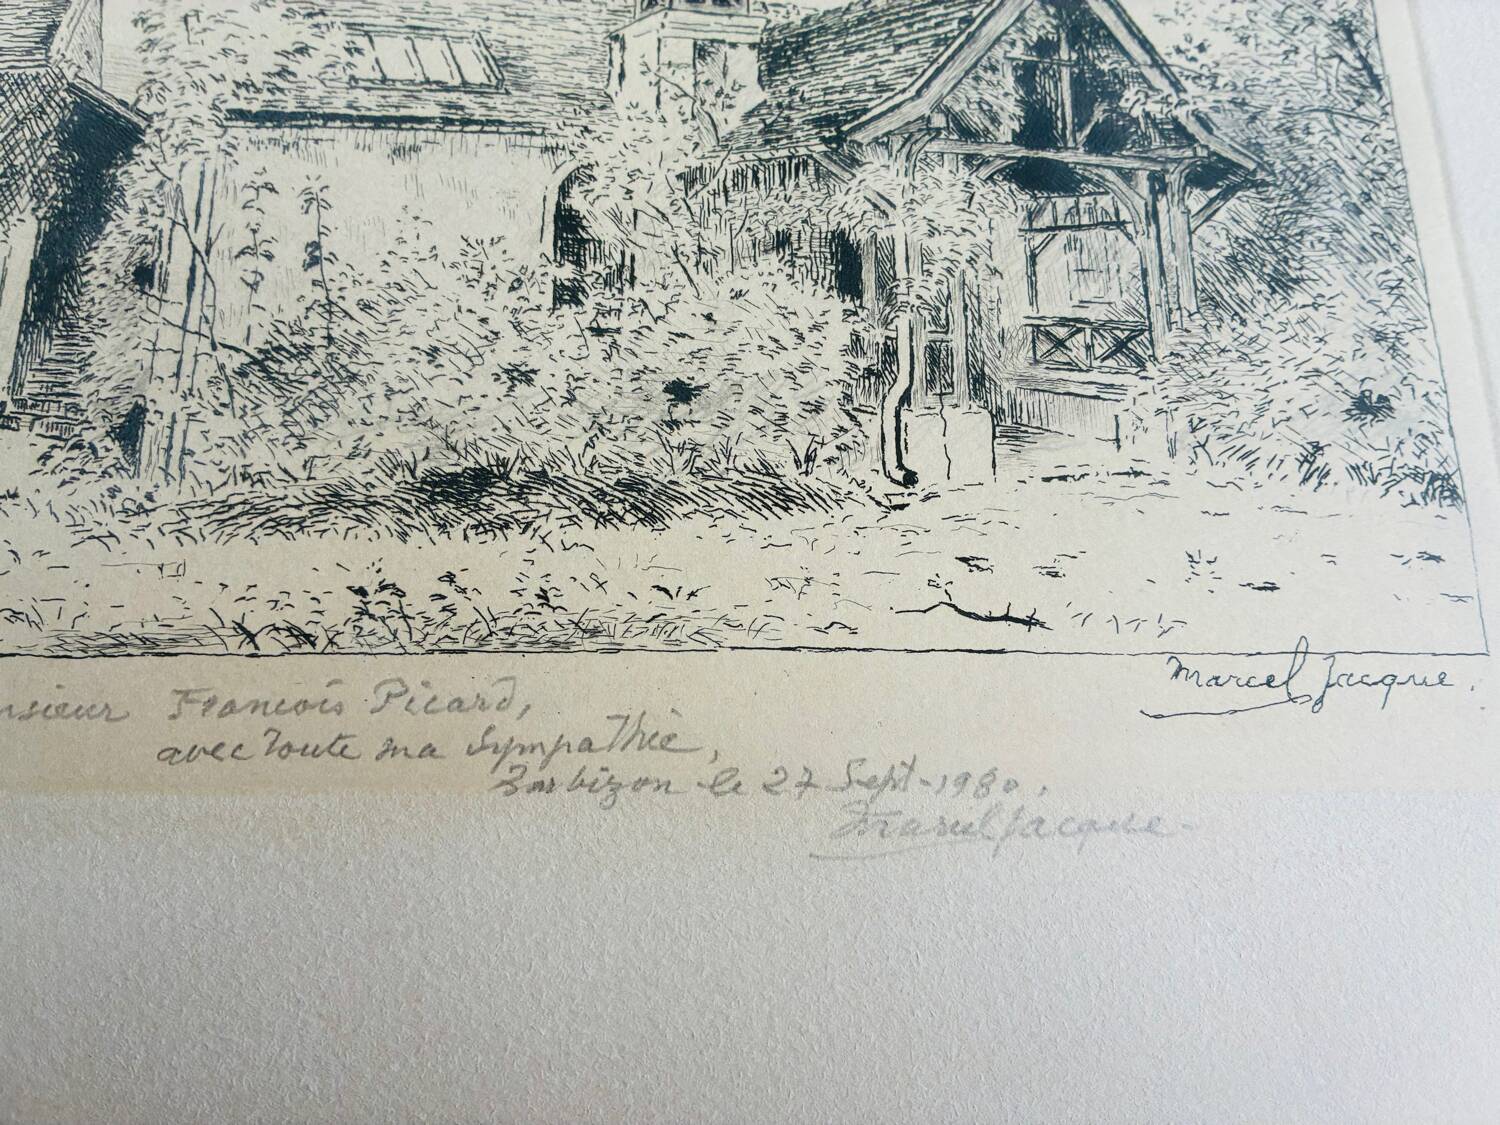 Marcel Jacque.
François Picard,
avec toute ma Sympathie,
Barbizon le 27 Sept-1980.
Marcel Jacque-